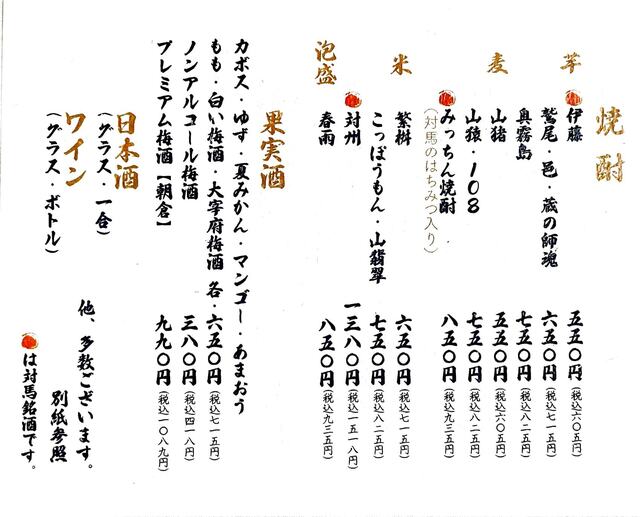 焼酎
芋
伊藤 五五〇円(税込六〇五円)
鷲尾・邑・蔵の師魂 六五〇円(税込七一五円)
奥霧島 七五〇円(税込八二五円)
麦
山猪 五五〇円(税込六〇五円)
山猿・108 七五〇円(税込八二五円)
みっちん焼酎 八五〇円(税込九三五円)
(対馬のはちみつ入り)
米
繁桝 六五〇円(税込七一五円)
こっぽうもん・山翡翠 七五〇円(税込八二五円)
対州 一三八〇円(税込一五一八円)
泡盛
春雨 八五〇円(税込九三五円)
果実酒
カボス・ゆず・夏みかん・マンゴー・あまおう
もも・白い梅酒・大宰府梅酒 各・六五〇円(税込七一五円)
ノンアルコール梅酒 三八〇円(税込四一八円)
プレミアム梅酒【朝倉】 九九〇円(税込一〇八九円)
日本酒
(グラス・一合)
ワイン
(グラス・ボトル)
他、多数ございます。
別紙参照
は対馬銘酒です。